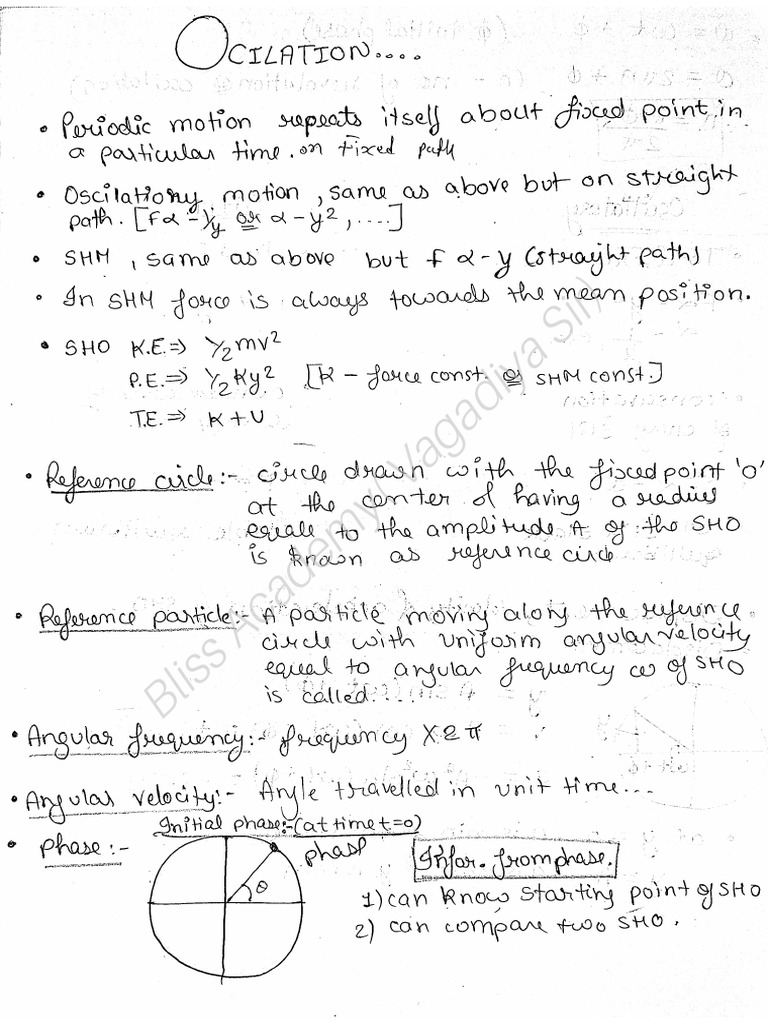 OCILATION....
• Periodic motion repeats itself about fixed point in
a particular time. on fixed path
• Oscilationy motion, same as above but on straight
path. [f α -1/y or α -y², ....]
• SHM, same as above but f α -y (straight path)
• In SHM force is always towards the mean position.
• SHO K.E. ⇒ 1/2 mv²
P.E. ⇒ 1/2 Ky² [K - force const. or SHM const.]
T.E. ⇒ K + U
• Reference circle:- circle drawn with the fixed point 'O'
at the center of having a radius
equale to the amplitude A of the SHO
is known as reference circle
• Reference particle:- A particle moving along the reference
circle with uniform angular velocity
equal to angular frequency ω of SHO
is called....
• Angular frequency:- frequency X 2 π
• Angular velocity:- Angle travelled in unit time...
Initial phase:- (at time t=0)
• Phase:-
phase
θ
Infor. from phase.
1) can know starting point of SHO
2) can compare two SHO.
Bliss Academy( Vagadiya Sir)